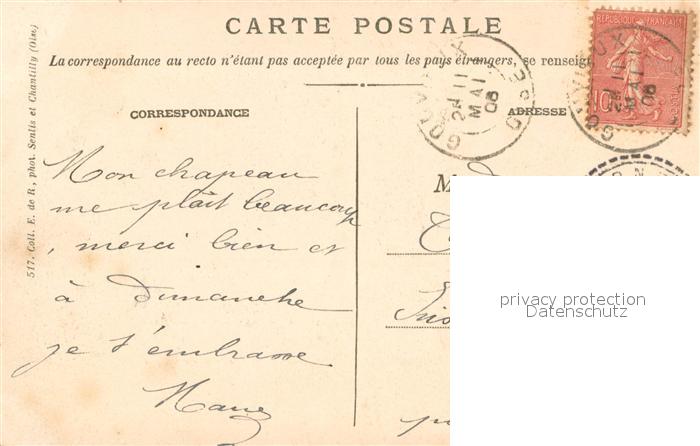 CARTE POSTALE
La correspondance au recto n'étant pas acceptée par tous les pays étrangers, se renseig
RÉPUBLIQUE FRANÇAISE
10
GOUVIEUX
2E
11
MAI
06
OISE
CORRESPONDANCE
ADRESSE
517. Coll. E. de R., phot. Senlis et Chantilly (Oise)
Mon chapeau
me plaît beaucoup
, merci bien et
à Dimanche
je t'embrasse
M
privacy protection
Datenschutz